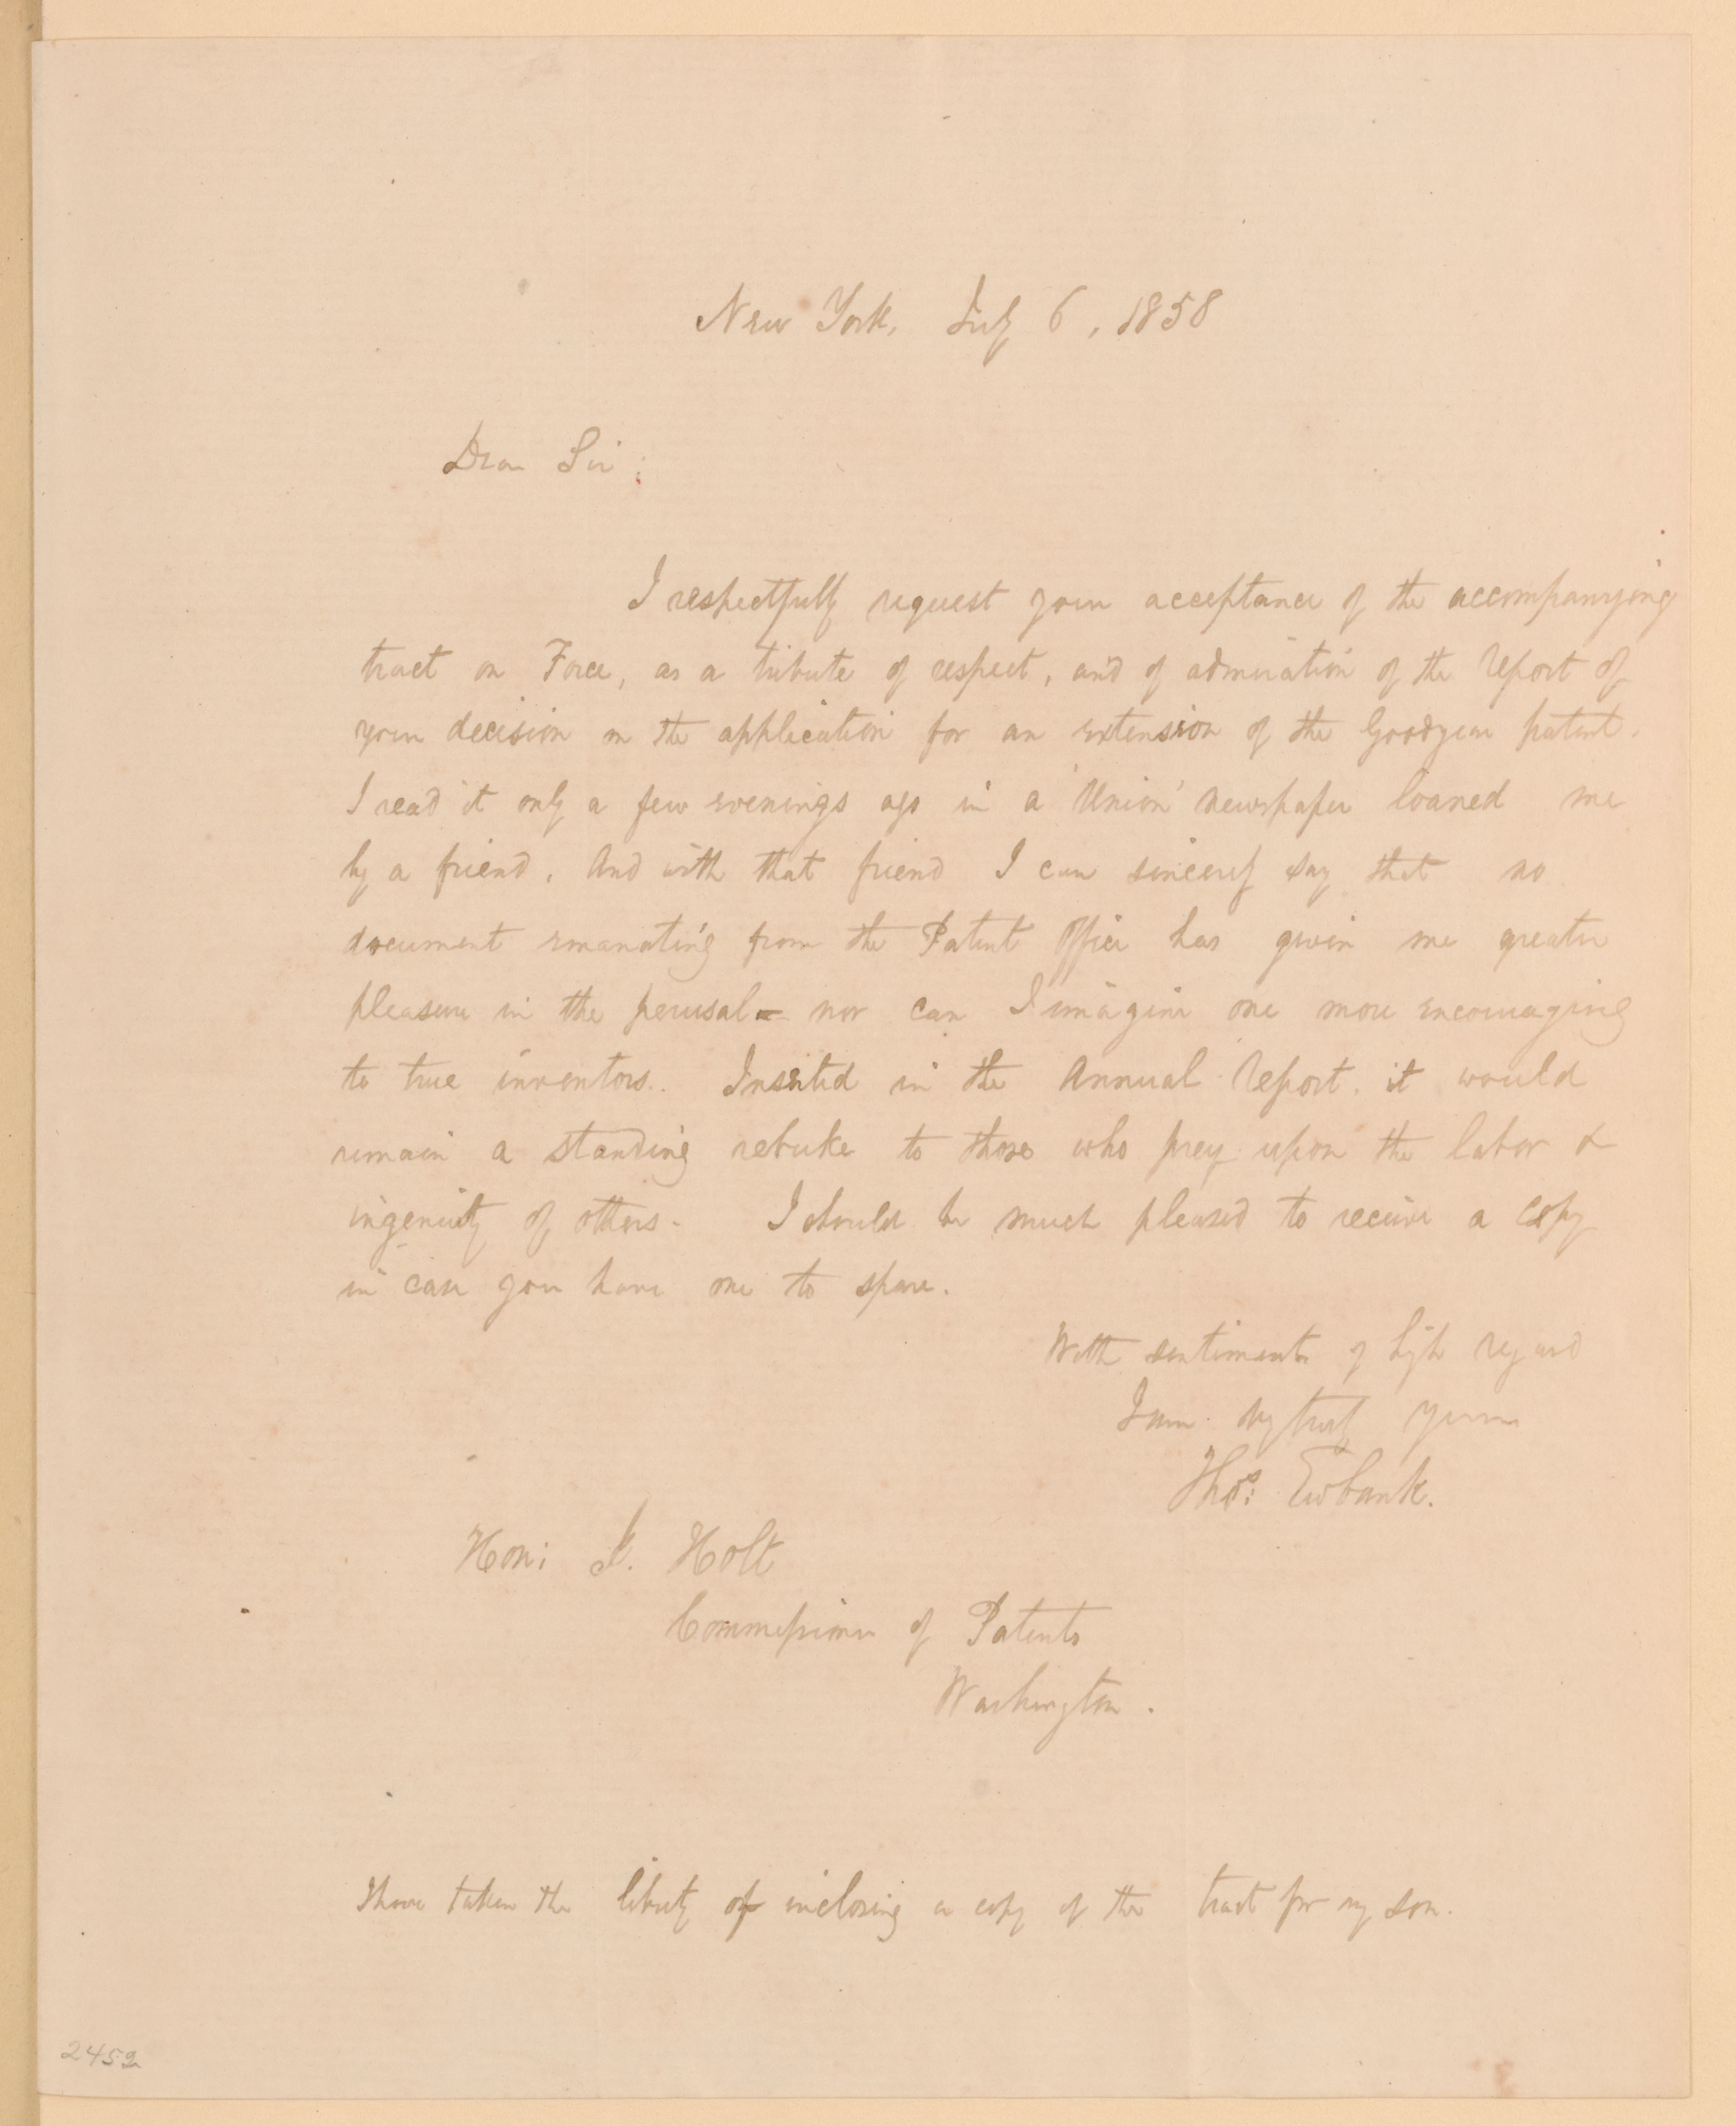 New York, July 6, 1858
Dear Sir:
I respectfully request your acceptance of the accompanying
tract on Force, as a tribute of respect, and of admiration of the report of
your decision on the application for an extension of the Goodyear patent.
I read it only a few evenings ago in a 'Union' newspaper loaned me
by a friend. And with that friend I can sincerely say that no
document emanating from the Patent Office has given me greater
pleasure in the perusal - nor can I imagine one more encouraging
to true inventors. Inserted in the Annual Report it would
remain a standing rebuke to those who prey upon the labor &
ingenuity of others. I should be much pleased to receive a copy
in case you have one to spare.
With sentiments of high regard
I am very truly yours
Thos: Ewbank.
Hon: J. Holt
Commissioner of Patents
Washington.
I have taken the liberty of inclosing a copy of the tract for my son.
2452